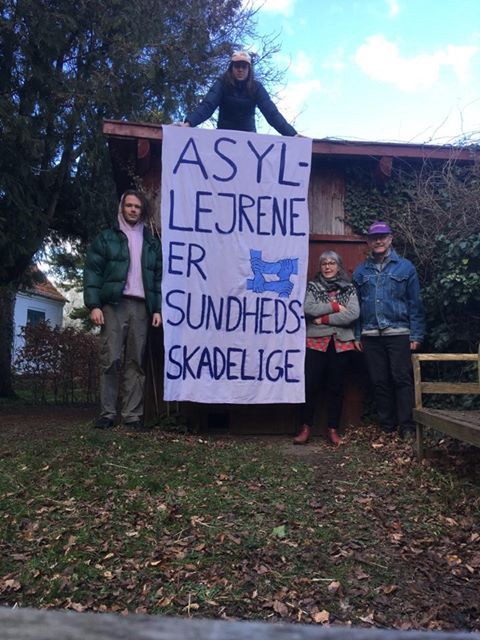 ASYL-
LEJRENE
ER
SUNDHEDS-
SKADELIGE